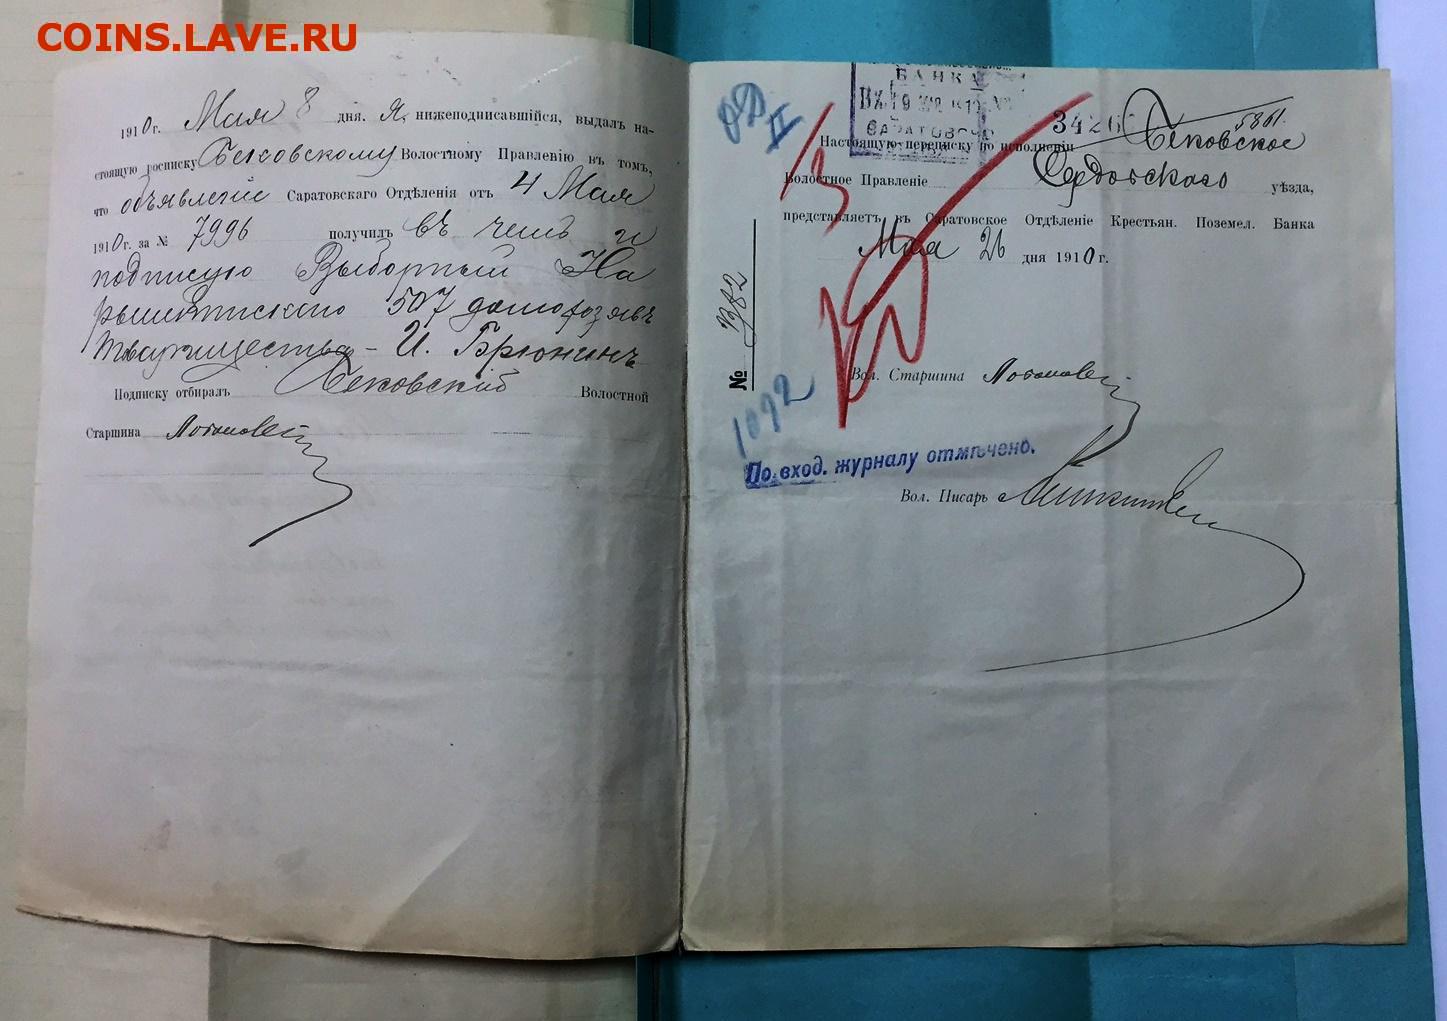 COINS.LAVE.RU
1910 г. Мая 8 дня. Я, нижеподписавшійся, выдалъ на-
стоящую росписку Бековскому Волостному Правленію въ томъ,
что объявленіе Саратовскаго Отдѣленія отъ 4 Мая
1910 г. за № 7996 получилъ въ чемъ и
подписуюсь Выборный На
рышкинскаго 507 домохозяевъ
товарищества - И. Брюнинъ
Подписку отбиралъ Бековскій Волостной
Старшина
БАНКА
ВХ. 19
САРАТОВСКО
II
3426
5861.
Настоящую переписку по исполненіи Бековское
Волостное Правленіе Сердобскаго уѣзда,
представляетъ въ Саратовское Отдѣленіе Крестьян. Поземел. Банка
Мая 26 дня 1910 г.
№
1092
Вол. Старшина
По вход. журналу отмѣчено.
Вол. Писарь